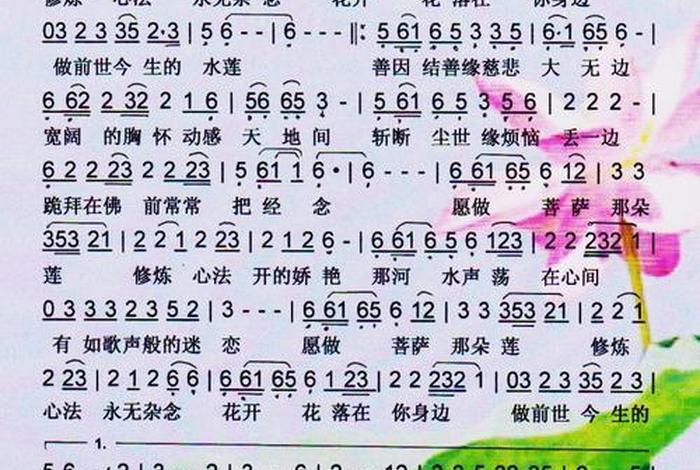 修炼 心法 永无杂念 花开 花落在 你身边
03 2 3 35 2·3 | 5 6 - - | 6 - - - ‖: 5 61 6 5 3 3 5 | 6·1 65 6 - |
做前世今 生的 水莲 善因 结善缘慈悲 大 无 边
6 62 2 32 2 1 6 | 56 65 3 - | 5 61 6 5 3 5 6 | 2 2 2 - |
宽阔 的胸 怀 动感 天 地 间 斩断 尘世 缘烦恼 丢一边
6 2 2 23 2 2 23 | 5 61 1 6 · | 6 - - - | 6 61 65 6 12 | 3 3
跪拜在佛 前常常 把 经 念 愿做 菩 萨 那朵
353 21 | 2 2 1 2 23 | 2 1 2 6 - | 6 61 6 5 6 123 | 2 2 232 1 |
莲 修炼 心法 开的娇 艳 那河 水声 荡 在心间
0 3 3 3 2 3 5 2 | 3 - - - | 6 61 65 6 12 | 3 3 353 21 | 2 2 1
有 如歌声般的迷 恋 愿做 菩萨 那朵 莲 修炼
2 23 | 2 1 2 6 6 | 6 61 65 6 1 23 | 2 2 232 1 | 03 2 3 35 2 3 |
心法 永无杂念 花开 花 落在 你身边 做前世 今 生的
1.